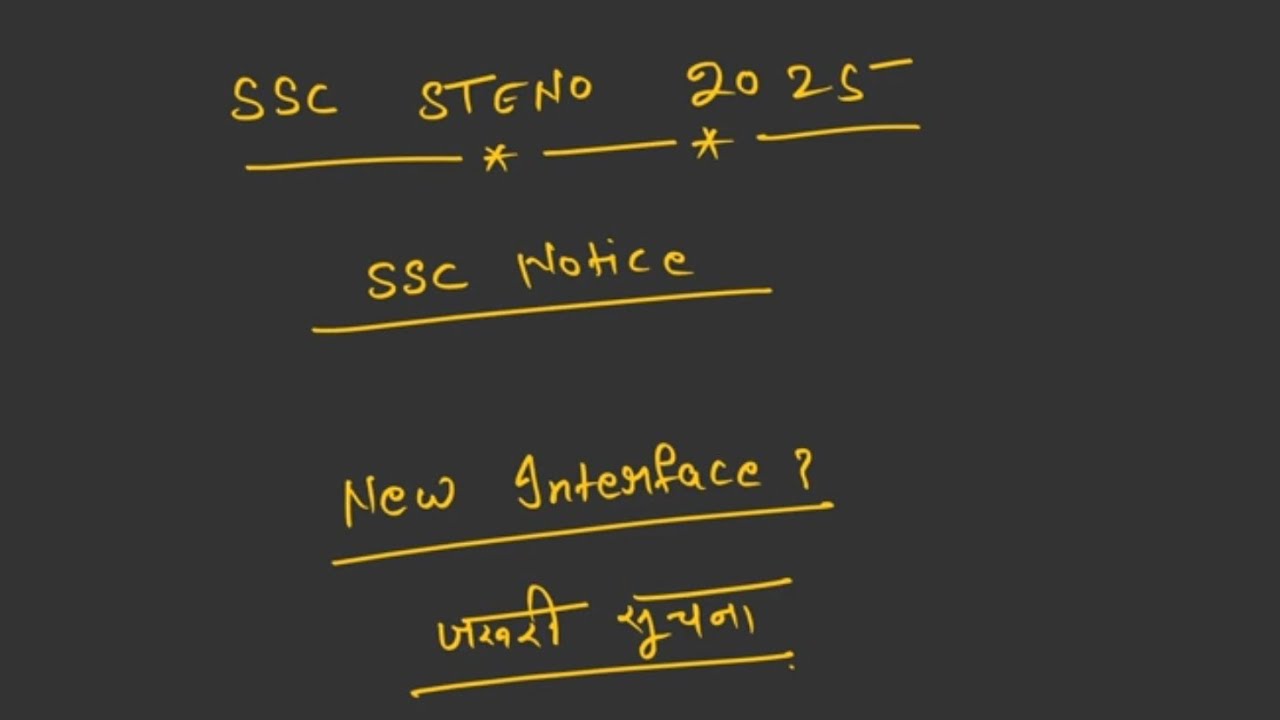 SSC STENO 2025
SSC Notice
New Interface?
जरूरी सूचना